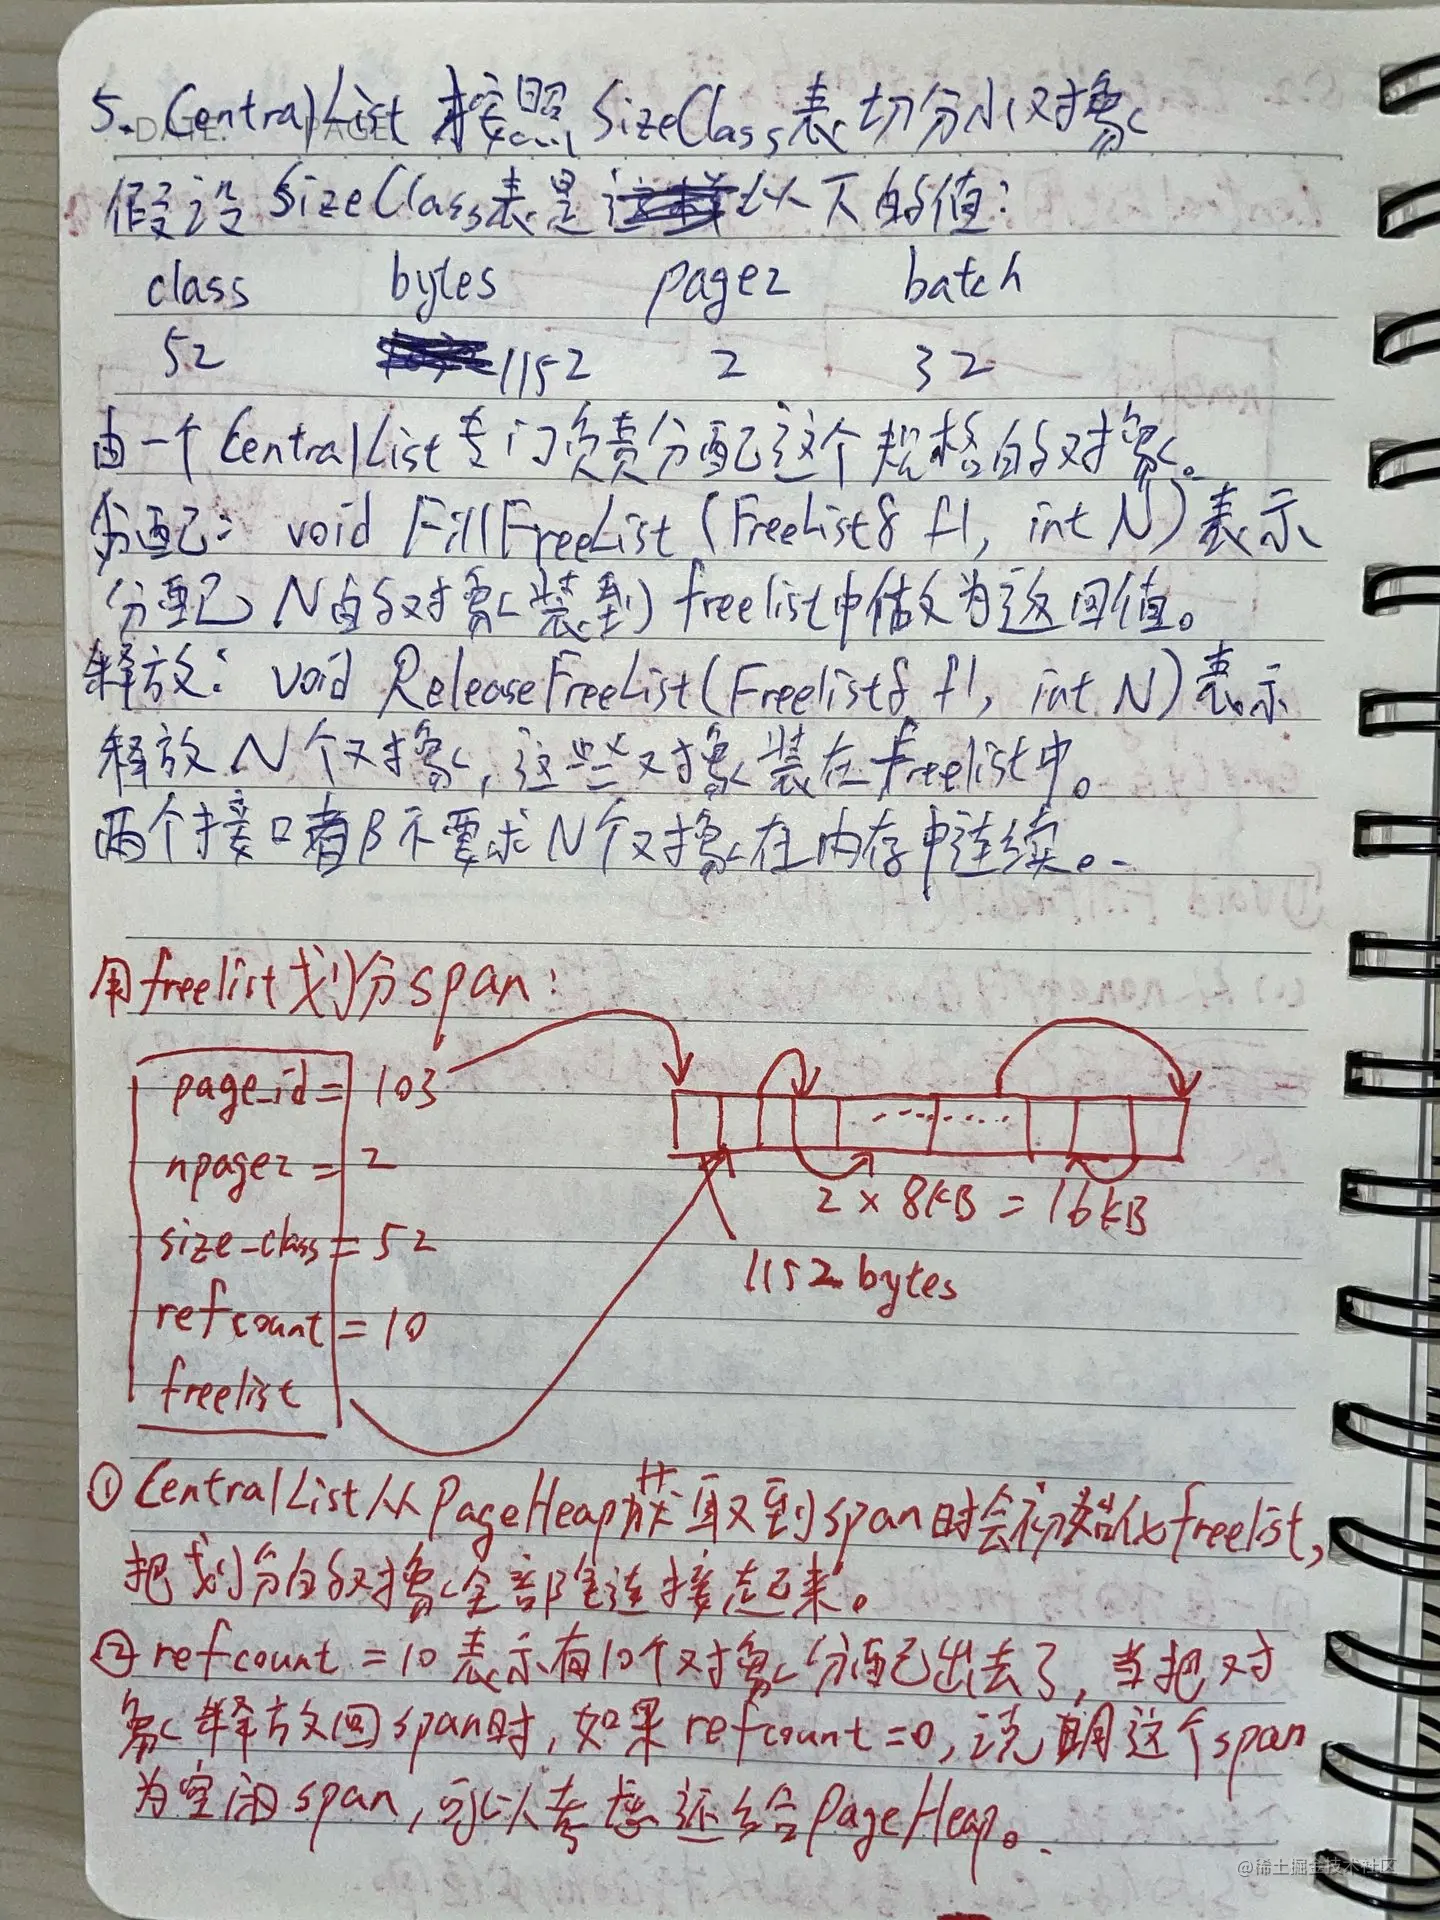 5. CentralList 按照 SizeClass表切分小对象
假设 SizeClass表是以下的值：
class bytes pages batch
52 1152 2 32
由一个 CentralList 专门负责分配这个规格的对象。
分配：void FillFreeList (FreeList& fl, int N) 表示
分配 N的对象装到 freelist中做为返回值。
释放：void ReleaseFreeList(Freelist& fl, int N)表示
释放 N个对象，这些对象装在freelist中。
两个接口都不要求N个对象在内存中连续。
用freelist划分span：
page_id = 103
npages = 2
size_class = 52
refcount = 10
freelist
2 x 8KB = 16KB
1152 bytes
① CentralList从PageHeap获取到span时会初始化freelist，
把划分的对象全部连接起来。
② refcount = 10 表示有10个对象分配出去了，当把对
象释放回span时，如果 refcount =0，说明这个span
为空闲span，可以考虑还给PageHeap。
@稀土掘金技术社区